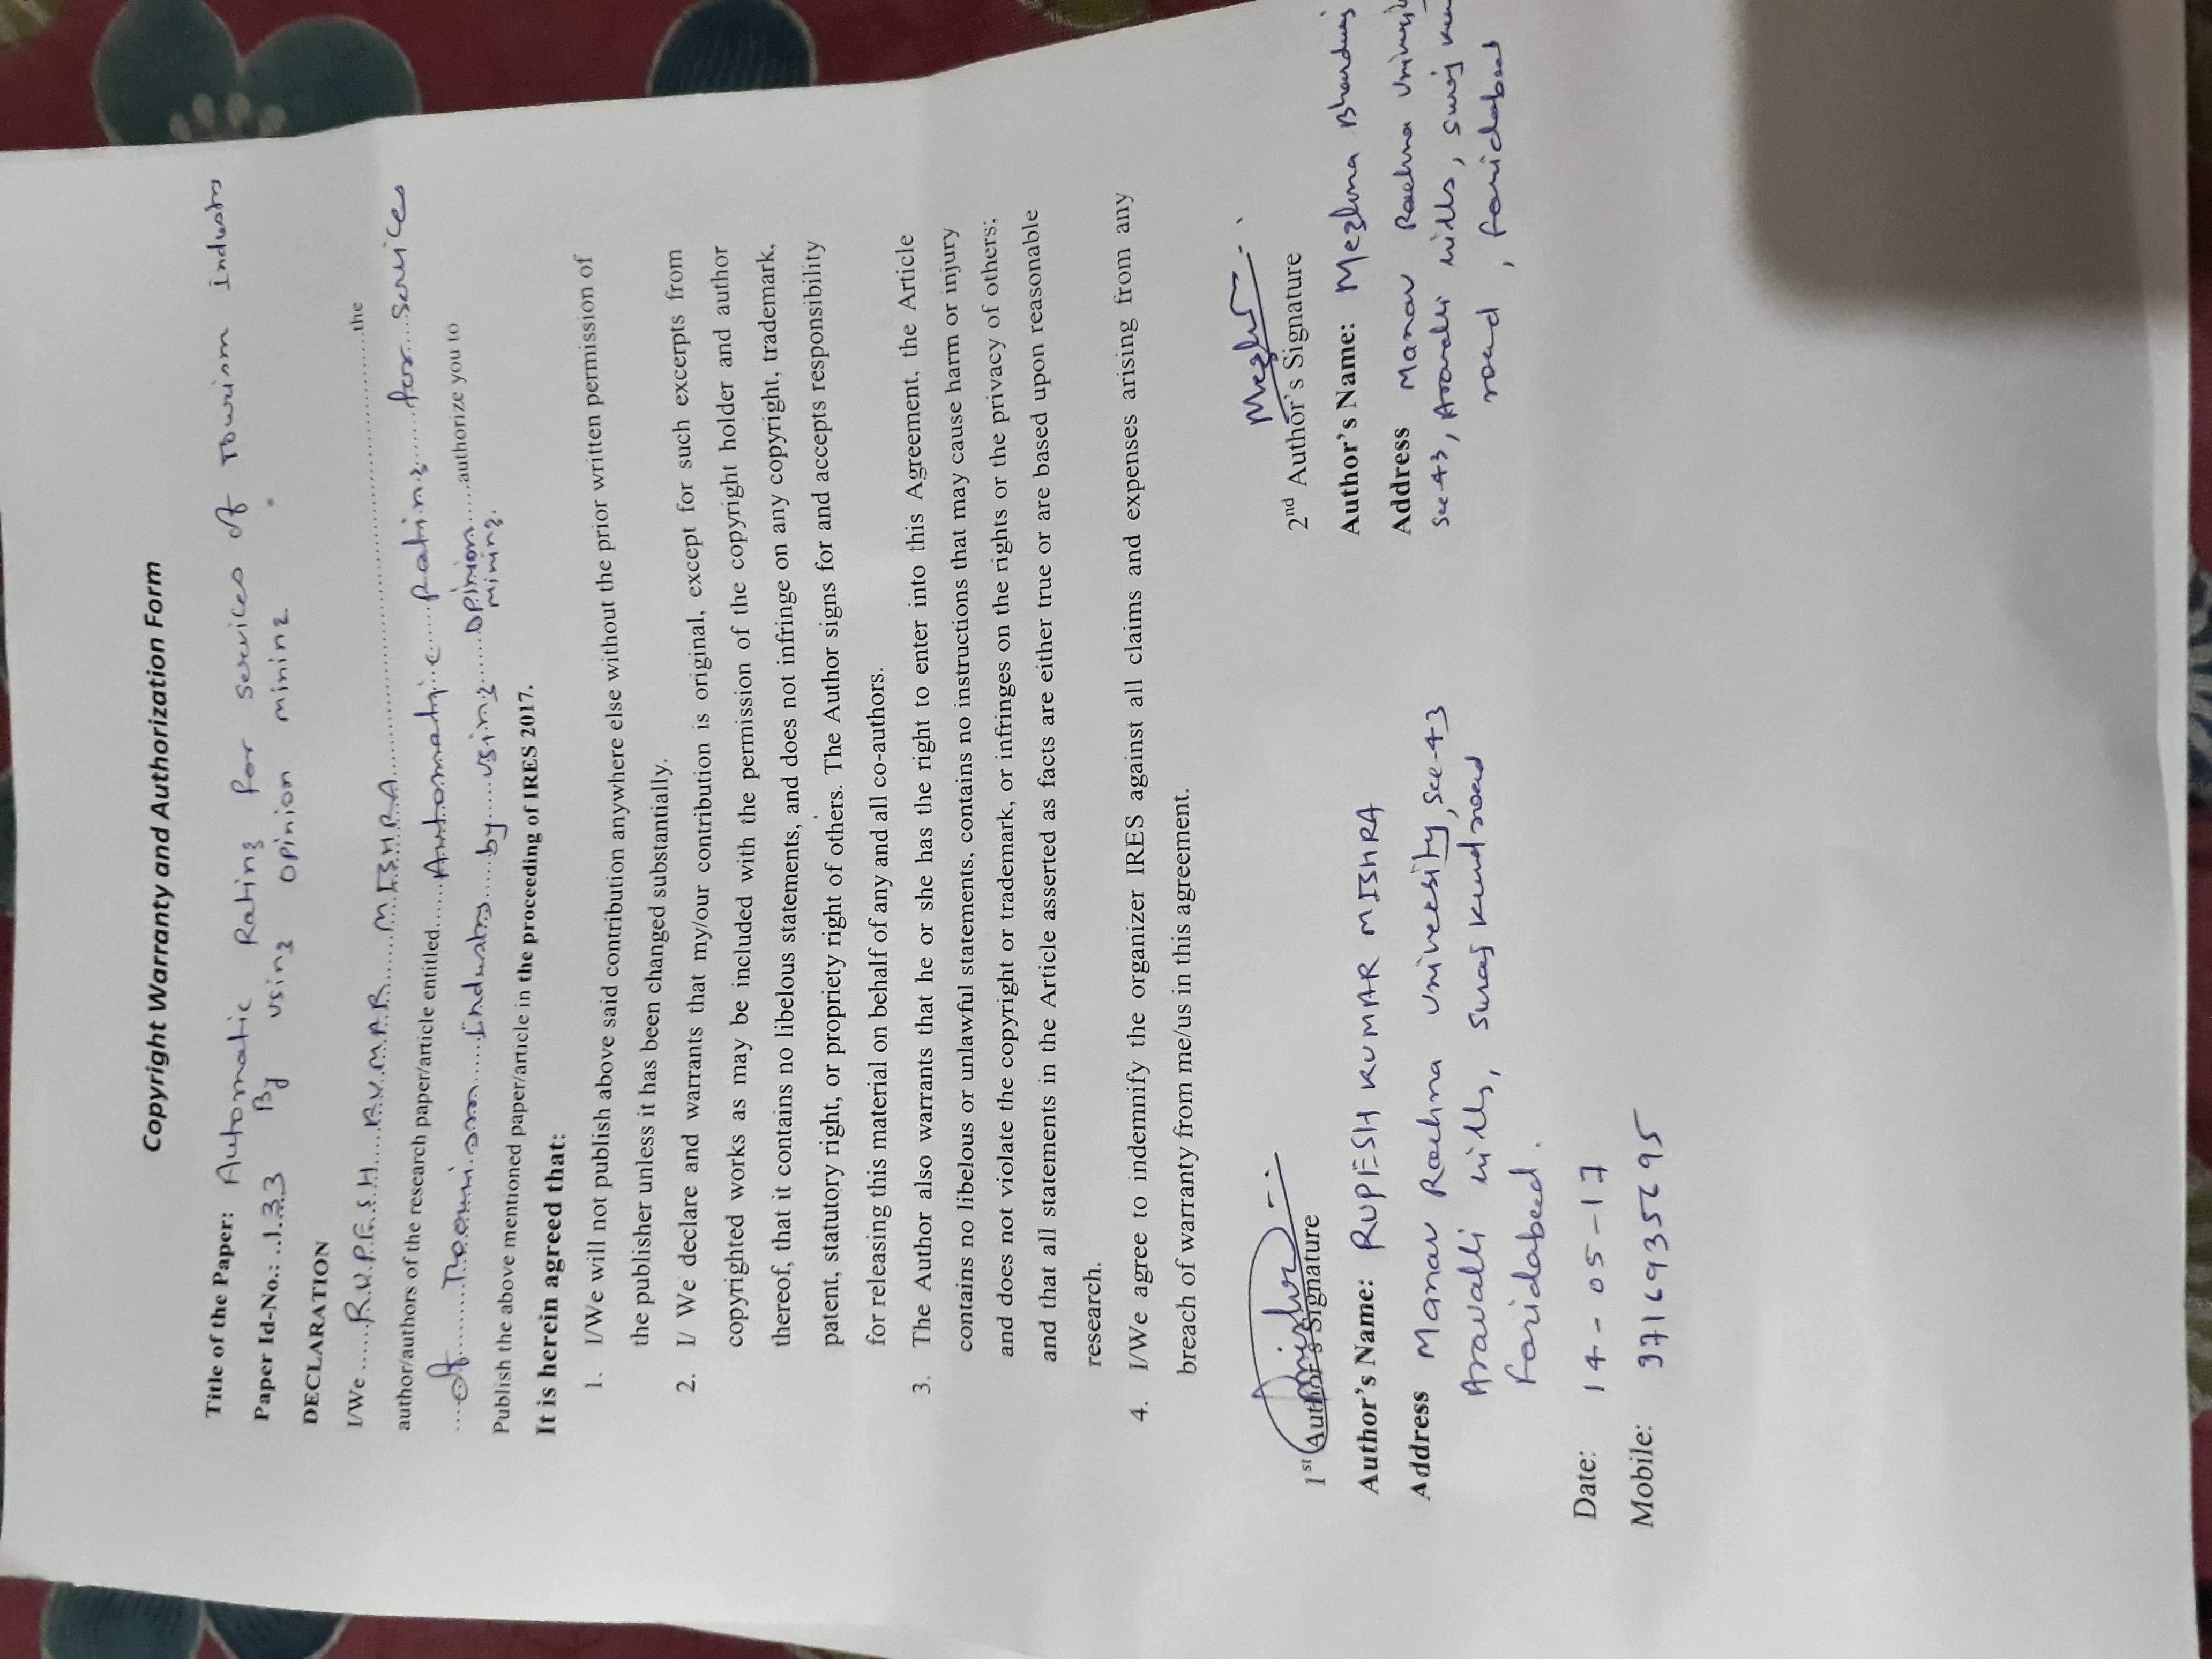 Copyright Warranty and Authorization Form
Title of the Paper: Automatic Rating for services of Tourism Industry
Paper Id-No.: ..133 By using opinion mining.
DECLARATION
I/We ......RUPESH KUMAR MISHRA..........................................the
author/authors of the research paper/article entitled......Automatic rating for services
....of Toourism industry by using opinion.....authorize you to
mining.
Publish the above mentioned paper/article in the proceeding of IRES 2017.
It is herein agreed that:
1. I/We will not publish above said contribution anywhere else without the prior written permission of
the publisher unless it has been changed substantially.
2. I/ We declare and warrants that my/our contribution is original, except for such excerpts from
copyrighted works as may be included with the permission of the copyright holder and author
thereof, that it contains no libelous statements, and does not infringe on any copyright, trademark,
patent, statutory right, or propriety right of others. The Author signs for and accepts responsibility
for releasing this material on behalf of any and all co-authors.
3. The Author also warrants that he or she has the right to enter into this Agreement, the Article
contains no libelous or unlawful statements, contains no instructions that may cause harm or injury
and does not violate the copyright or trademark, or infringes on the rights or the privacy of others;
and that all statements in the Article asserted as facts are either true or are based upon reasonable
research.
4. I/We agree to indemnify the organizer IRES against all claims and expenses arising from any
breach of warranty from me/us in this agreement.
1st Author's Signature
Author's Name: RUPESH KUMAR MISHRA
Address Manav Rachna University, Sec-43
Aravalli hills, Suraj kund road
Faridabad.
Date: 14-05-17
Mobile: 9716935695
Megh
2nd Author's Signature
Author's Name: Meghna Bhardwaj
Address Manav Rachna Universit
Sec-43, Aravalli hills, Suraj kun
road, faridabad